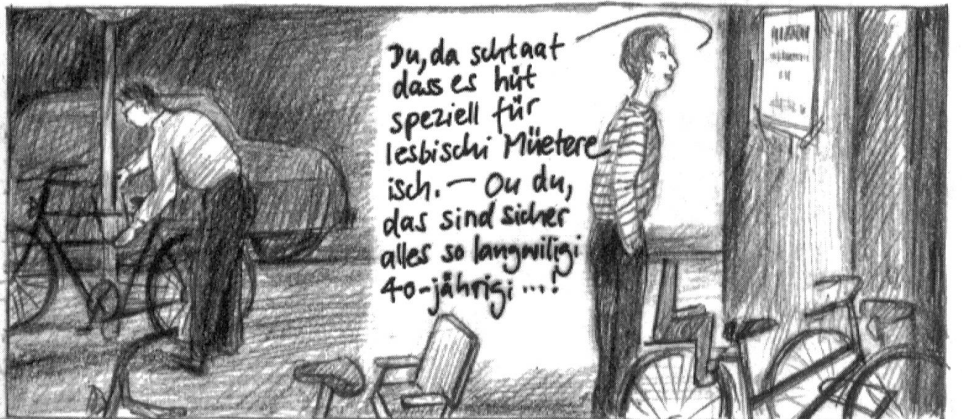 Du, da schtaat
dass es hüt
speziell für
lesbischi Müetere
isch. – Ou du,
das sind sicher
alles so langwiligi
40-jährigi ...!